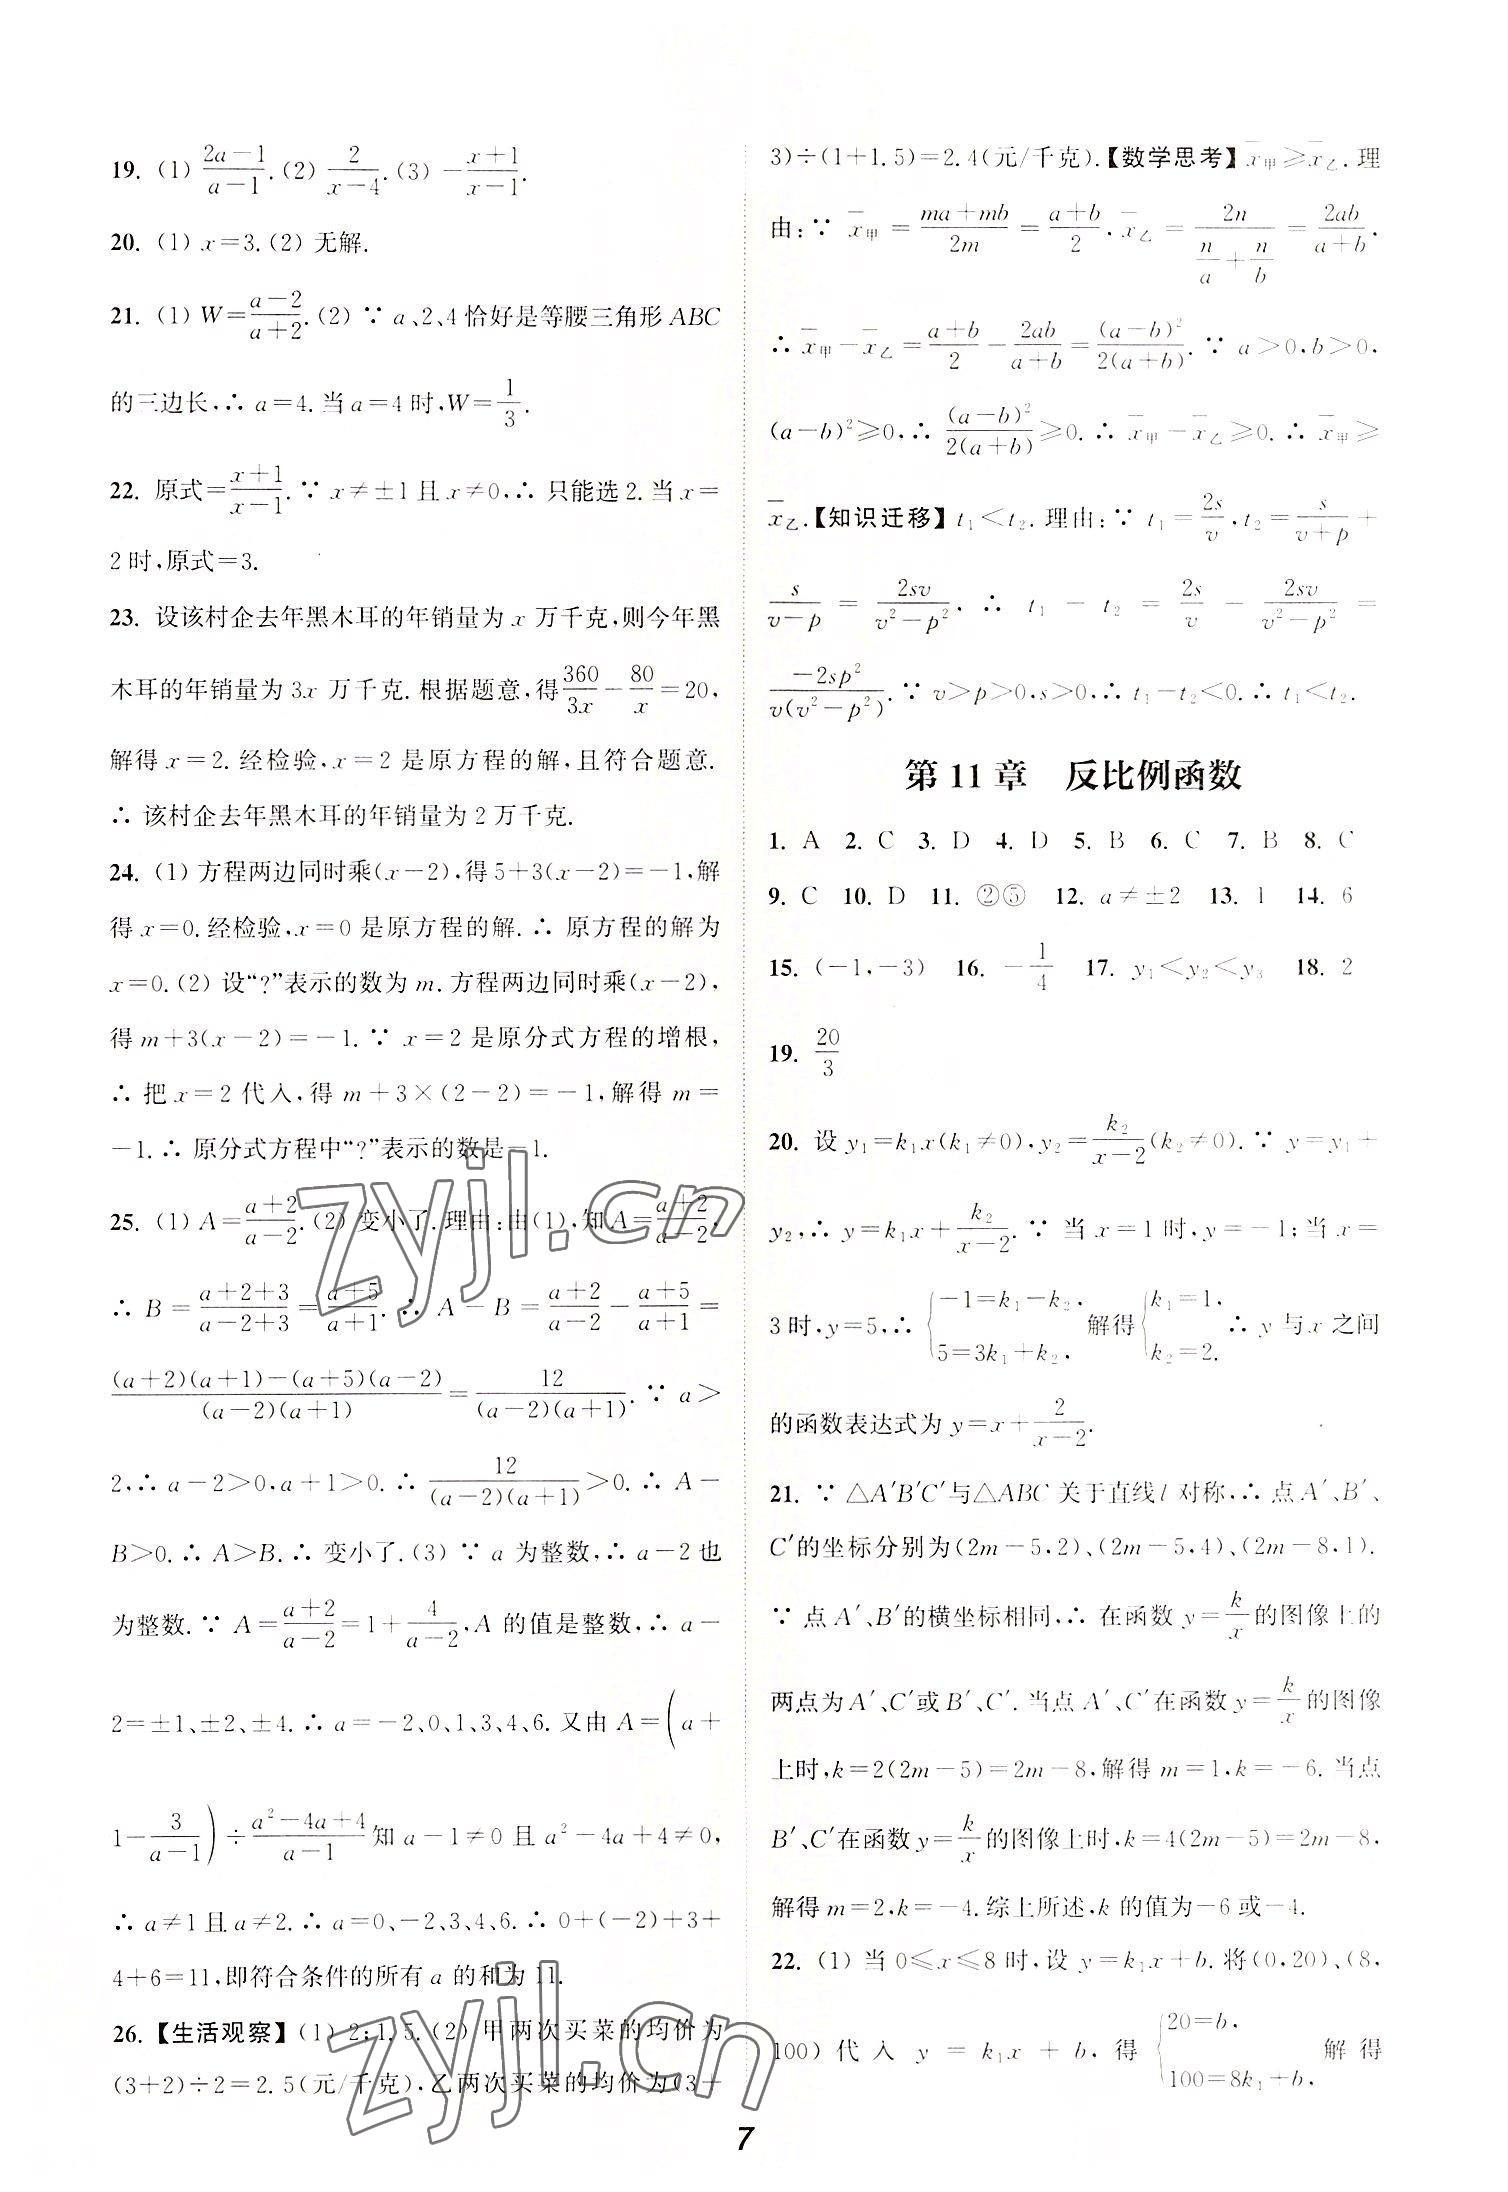 19. (1) \frac{2a-1}{a-1}.(2) \frac{2}{x-4}.(3) -\frac{x+1}{x-1}.
20. (1) x=3.(2) 无解.
21. (1) W=\frac{a-2}{a+2}.(2) ∵ a、2、4恰好是等腰三角形ABC
的三边长,∴ a=4. 当a=4时,W=\frac{1}{3}.
22. 原式=\frac{x+1}{x-1}.∵ x≠±1且x≠0,∴ 只能选2. 当x=
2时,原式=3.
23. 设该村企去年黑木耳的年销量为x万千克,则今年黑
木耳的年销量为3x万千克. 根据题意,得\frac{360}{3x}-\frac{80}{x}=20,
解得x=2. 经检验,x=2是原方程的解,且符合题意.
∴ 该村企去年黑木耳的年销量为2万千克.
24. (1) 方程两边同时乘(x-2),得5+3(x-2)=-1,解
得x=0. 经检验,x=0是原方程的解. ∴ 原方程的解为
x=0.(2) 设“?”表示的数为m. 方程两边同时乘(x-2),
得m+3(x-2)=-1. ∵ x=2是原分式方程的增根,
∴ 把x=2代入,得m+3×(2-2)=-1,解得m=
-1. ∴ 原分式方程中“?”表示的数是-1.
25. (1) A=\frac{a+2}{a-2}.(2) 变小了. 理由:由(1),知A=\frac{a+2}{a-2}.
∴ B=\frac{a+2+3}{a-2+3}=\frac{a+5}{a+1}. ∴ A-B=\frac{a+2}{a-2}-\frac{a+5}{a+1}=
\frac{(a+2)(a+1)-(a+5)(a-2)}{(a-2)(a+1)}=\frac{12}{(a-2)(a+1)}. ∵ a>
2,∴ a-2>0,a+1>0. ∴ \frac{12}{(a-2)(a+1)}>0. ∴ A-
B>0. ∴ A>B. ∴ 变小了.(3) ∵ a为整数,∴ a-2也
为整数. ∵ A=\frac{a+2}{a-2}=1+\frac{4}{a-2},A的值是整数,∴ a-
2=±1、±2、±4. ∴ a=-2、0、1、3、4、6. 又由A=(a+
1-\frac{3}{a-1})÷\frac{a²-4a+4}{a-1}知a-1≠0且a²-4a+4≠0,
∴ a≠1且a≠2. ∴ a=0、-2、3、4、6. ∴ 0+(-2)+3+
4+6=11,即符合条件的所有a的和为11.
26.【生活观察】(1) 2;1.5.(2) 甲两次买菜的均价为
(3+2)÷2=2.5(元/千克),乙两次买菜的均价为(3+
3)÷(1+1.5)=2.4(元/千克).【数学思考】\bar{x}_甲≥\bar{x}_乙. 理
由:∵ \bar{x}_甲=\frac{ma+mb}{2m}=\frac{a+b}{2},\bar{x}_乙=\frac{2n}{\frac{n}{a}+\frac{n}{b}}=\frac{2ab}{a+b},
∴ \bar{x}_甲-\bar{x}_乙=\frac{a+b}{2}-\frac{2ab}{a+b}=\frac{(a-b)²}{2(a+b)}. ∵ a>0,b>0,
(a-b)²≥0,∴ \frac{(a-b)²}{2(a+b)}≥0. ∴ \bar{x}_甲-\bar{x}_乙≥0. ∴ \bar{x}_甲≥
\bar{x}_乙.【知识迁移】t₁<t₂. 理由:∵ t₁=\frac{2s}{v},t₂=\frac{s}{v+p}+
\frac{s}{v-p}=\frac{2sv}{v²-p²},∴ t₁-t₂=\frac{2s}{v}-\frac{2sv}{v²-p²}=
\frac{-2sp²}{v(v²-p²)}. ∵ v>p>0,s>0,∴ t₁-t₂<0. ∴ t₁<t₂.
第11章 反比例函数
1. A 2. C 3. D 4. D 5. B 6. C 7. B 8. C
9. C 10. D 11. ②⑤ 12. a≠±2 13. 1 14. 6
15. (-1,-3) 16. -\frac{1}{4} 17. y₁<y₂<y₃ 18. 2
19. \frac{20}{3}
20. 设y₁=k₁x(k₁≠0),y₂=\frac{k₂}{x-2}(k₂≠0). ∵ y=y₁+
y₂,∴ y=k₁x+\frac{k₂}{x-2}. ∵ 当x=1时,y=-1;当x=
3时,y=5,∴ \begin{cases}-1=k₁-k₂,\\5=3k₁+k₂,\end{cases}解得\begin{cases}k₁=1,\\k₂=2.\end{cases}∴ y与x之间
的函数表达式为y=x+\frac{2}{x-2}.
21. ∵ △A′B′C′与△ABC关于直线l对称,∴ 点A′、B′、
C′的坐标分别为(2m-5,2)、(2m-5,4)、(2m-8,1).
∵ 点A′、B′的横坐标相同,∴ 在函数y=\frac{k}{x}的图像上的
两点为A′、C′或B′、C′. 当点A′、C′在函数y=\frac{k}{x}的图像
上时,k=2(2m-5)=2m-8,解得m=1,k=-6. 当点
B′、C′在函数y=\frac{k}{x}的图像上时,k=4(2m-5)=2m-8,
解得m=2,k=-4. 综上所述,k的值为-6或-4.
22. (1) 当0≤x≤8时,设y=k₁x+b. 将(0,20)、(8,
100)代入y=k₁x+b,得\begin{cases}20=b,\\100=8k₁+b,\end{cases}解得
7
zyjl.cn
zyjl.cn